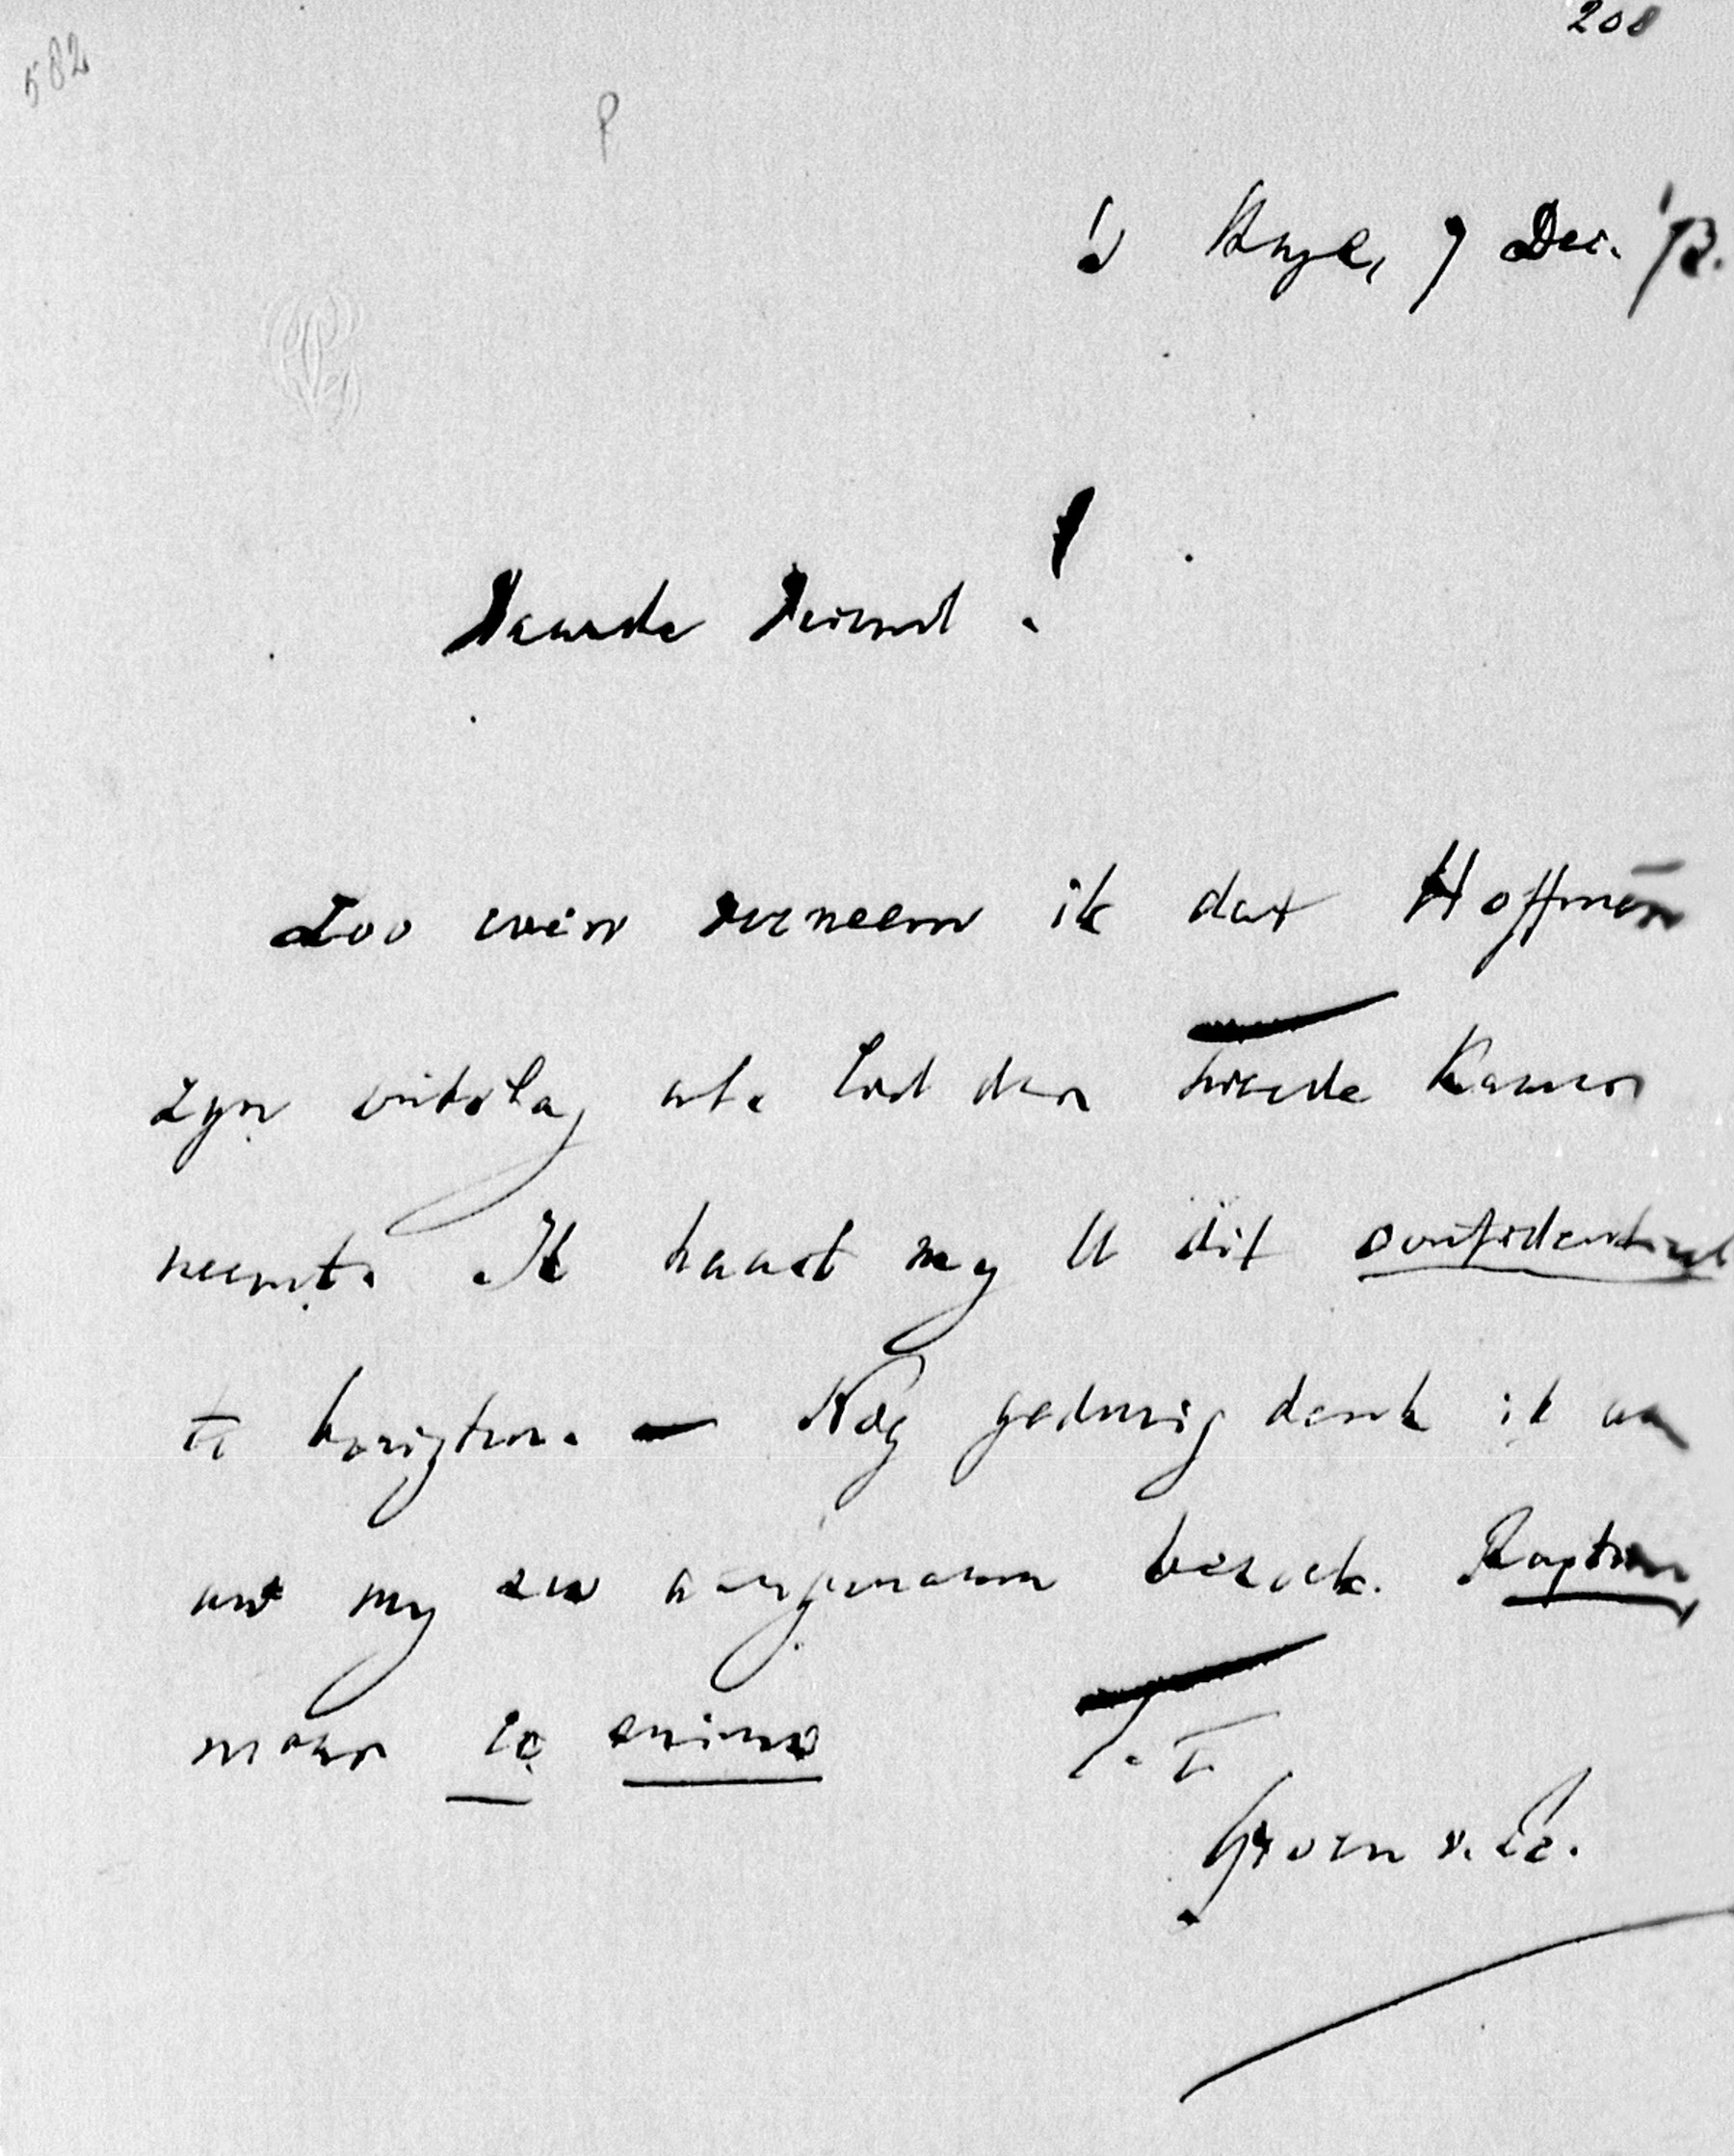 208
582
P
's Hage, 7 Dec. '73.
Waarde Vriend!
Zoo even verneem ik dat Hoffman
zyn ontslag als Lid der tweede Kamer
neemt. Ik haast my U dit confidentieel
te berigten. — Nog gedurig denk ik aan
uw my zoo aangenaam bezoek. Raptim,
maar ex animo
t. t.
Groen v. Pr.